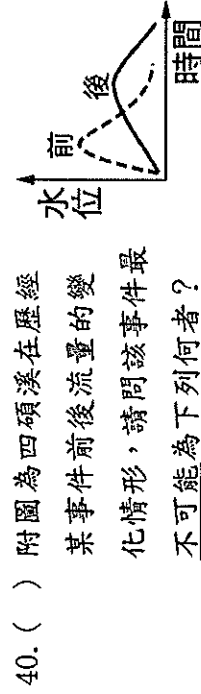 40.(　) 附圖為四碩溪在歷經
某事件前後流量的變
化情形，請問該事件最
不可能為下列何者？
水位
前
後
時間